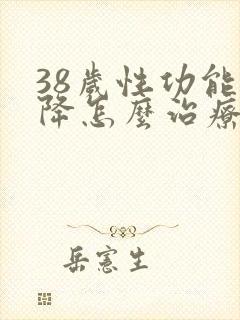 38歲性功能
降怎麼治療
岳憲生